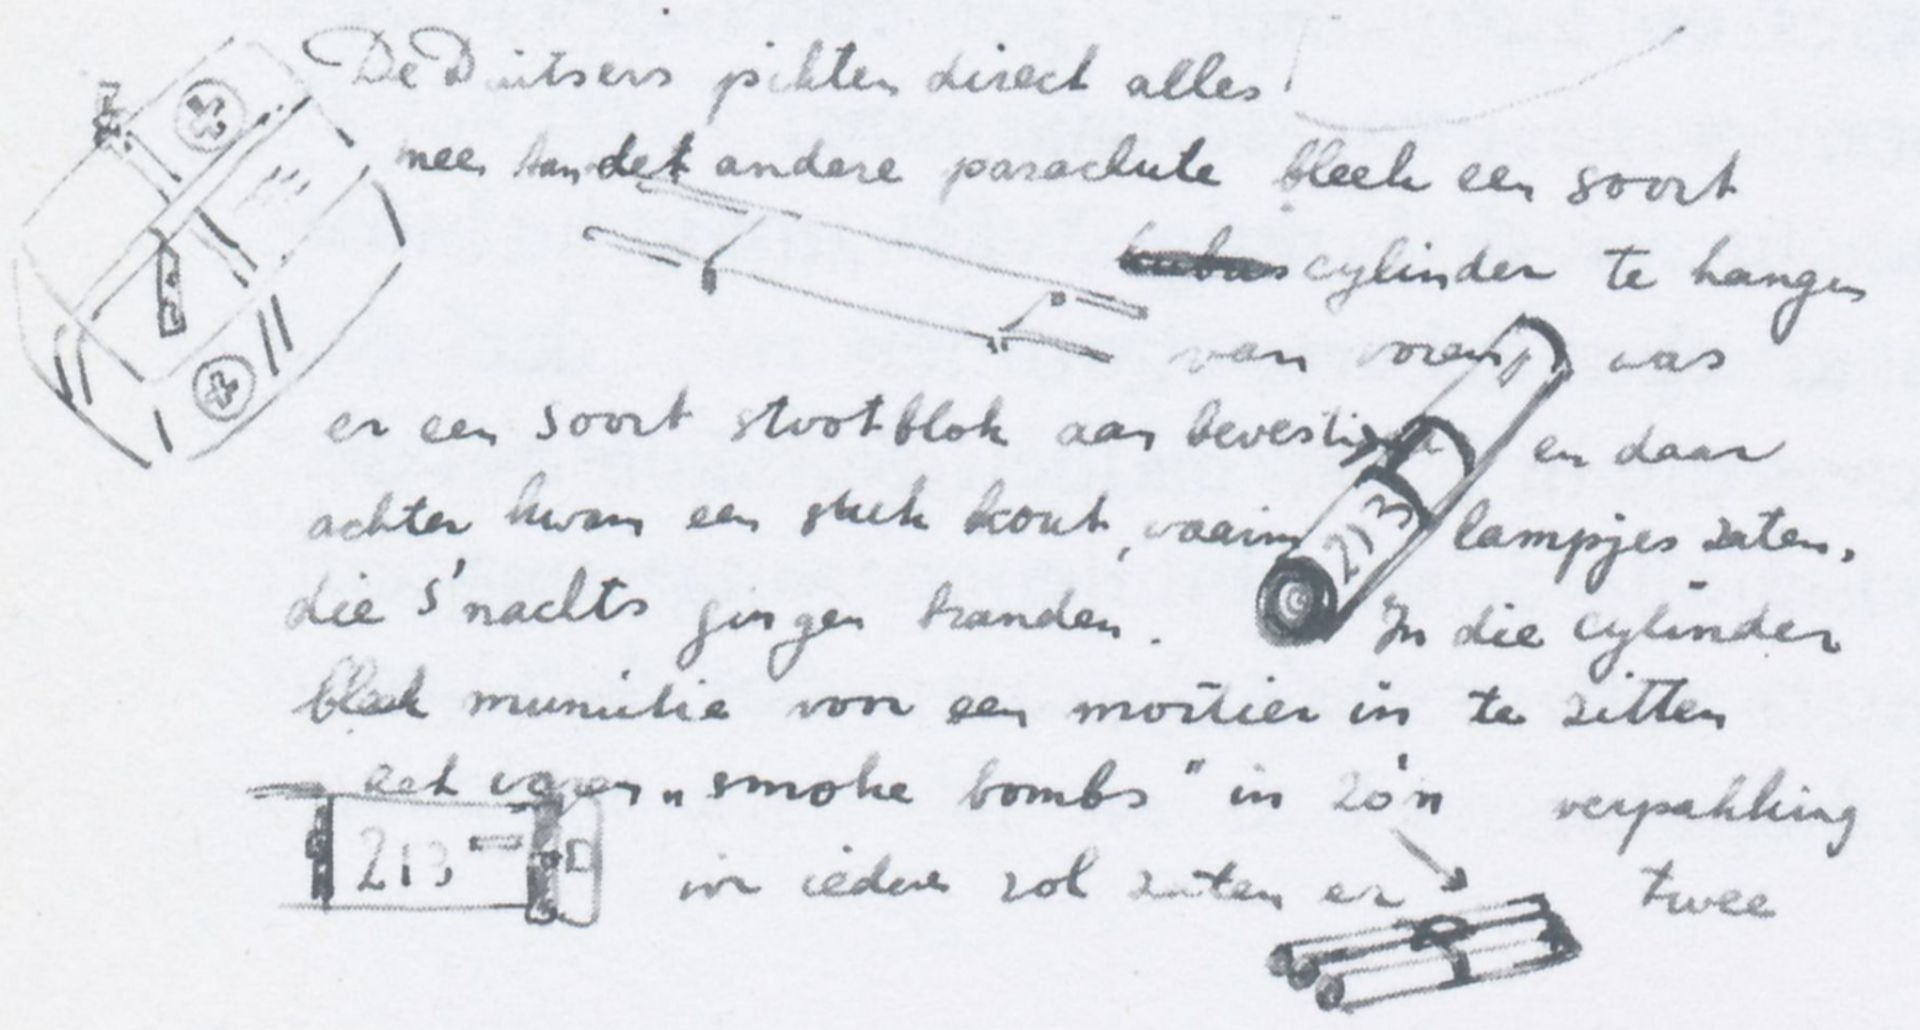 De Duitsers pikten direct alles
mee, aan de andere parachute bleek een soort
cylinder te hangen
van voren was
er een soort stootblok aan bevestigd en daar
achter kwam een stuk hout, waarin lampjes zaten,
die s'nachts gingen branden. In die cylinder
bleek munitie voor een mortier in te zitten
het waren „smoke bombs" in zo'n verpakking
in iedere rol zaten er twee
213
213